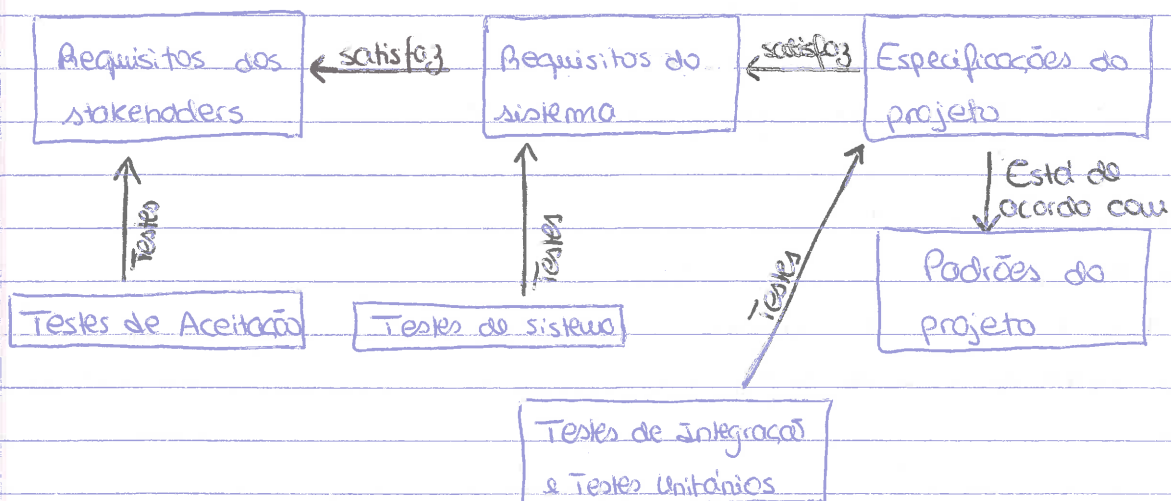 Requisitos dos
stakehoders
satisfaz
Requisitos do
sistema
satisfaz
Especificações do
projeto
Está de
acordo com
Testes
Testes
Testes
Padrões do
projeto
Testes de Aceitação
Testes de sistema
Testes de Integração
e Testes Unitários